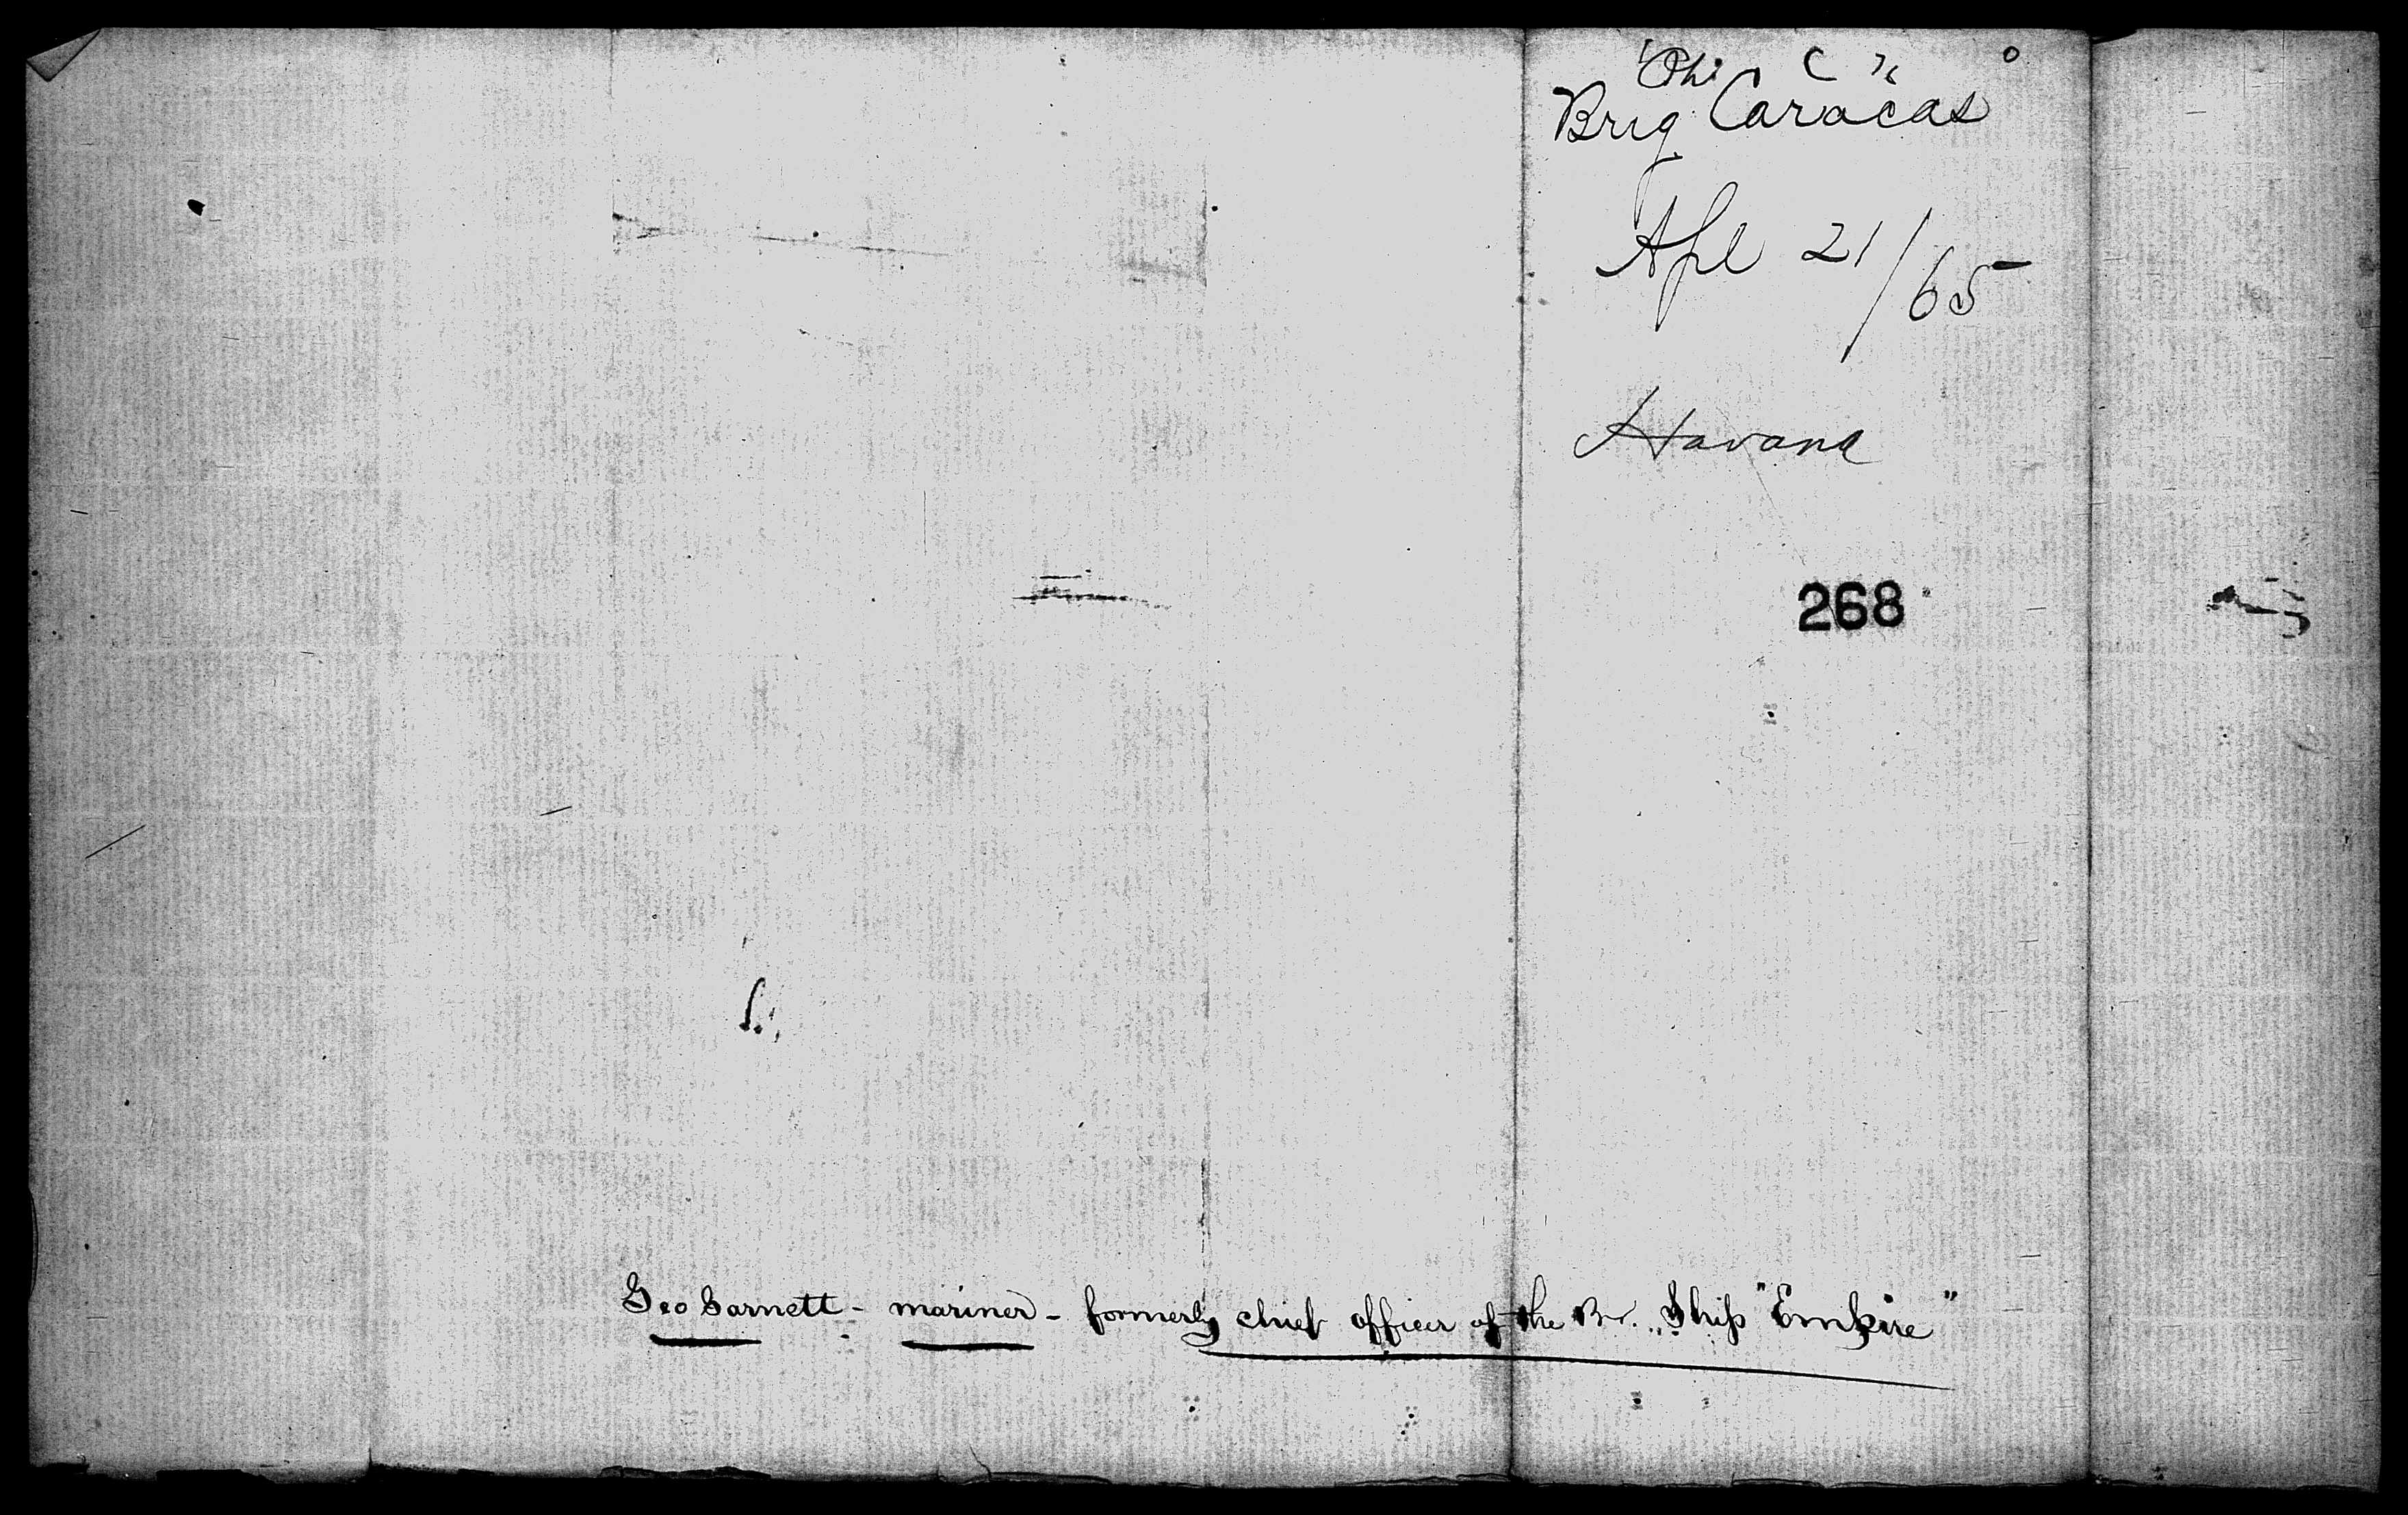 Brig Caracas
Apl 21/65
Havana
268
Geo Garnett - mariner - formerly chief officer of the Br. Ship "Empire"